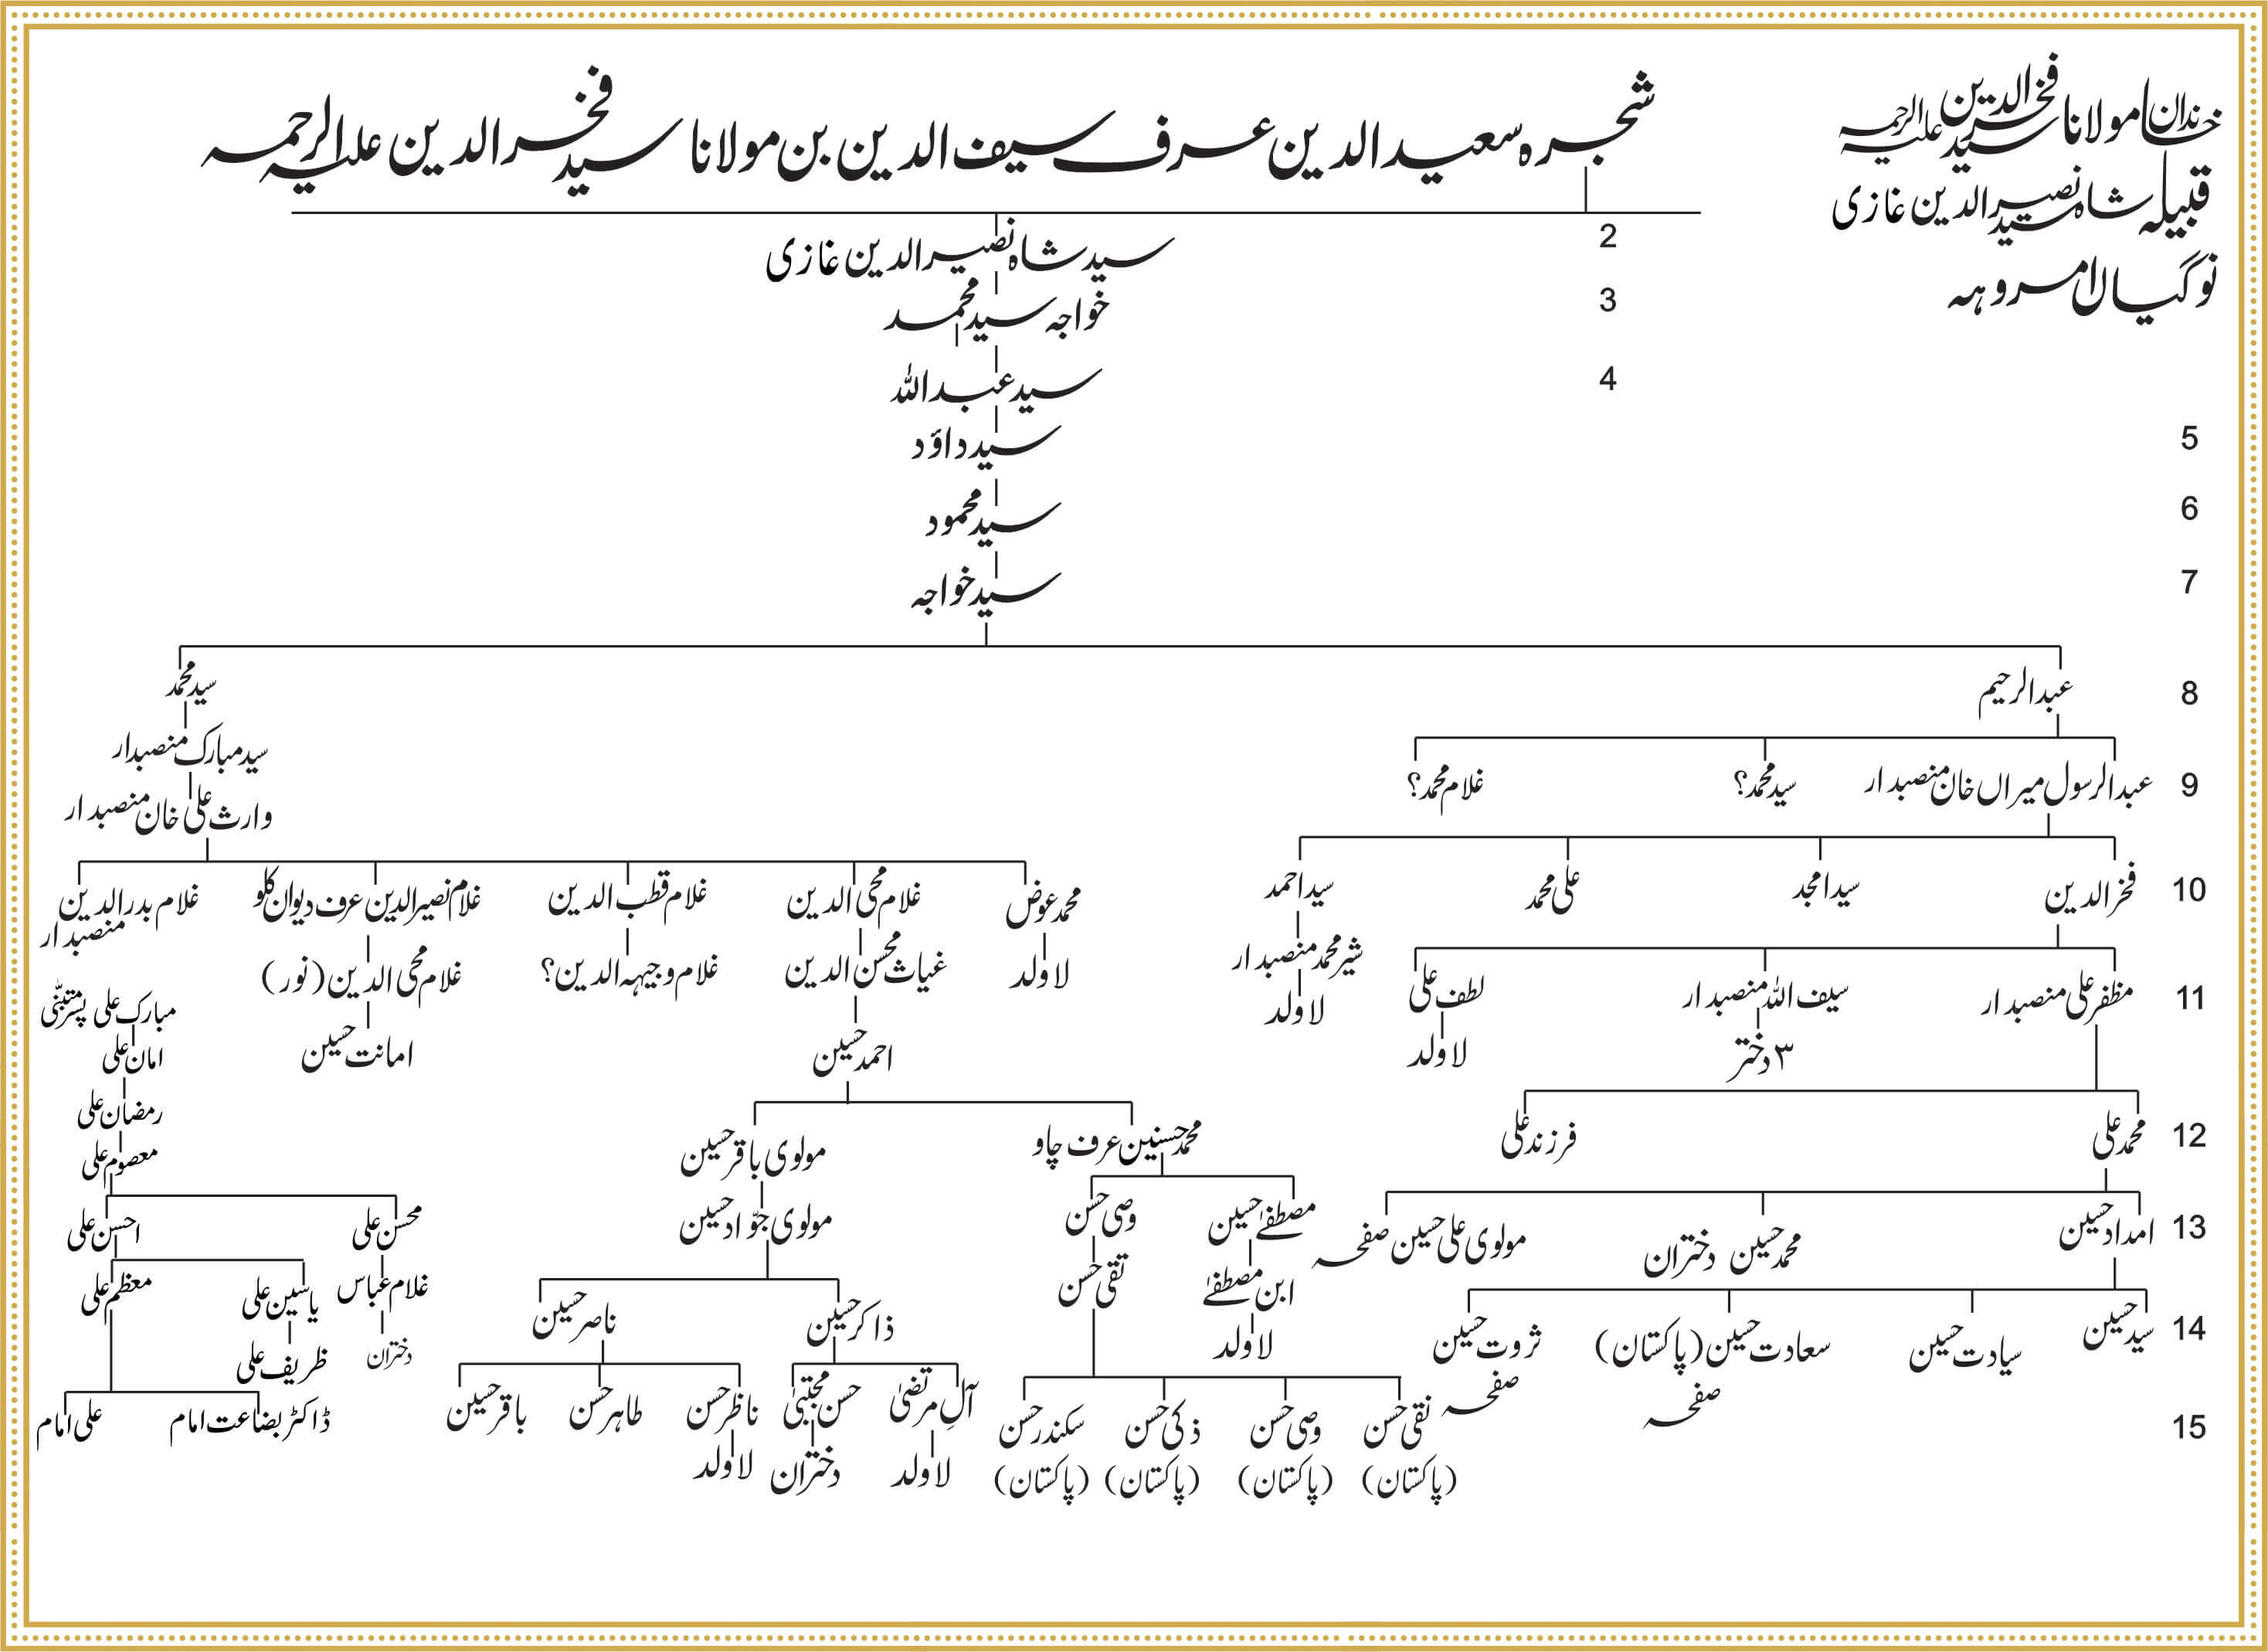 خاندان مولانا سید فخرالدین علیہ الرحمہ
قبیلہ شاہ سید نصیرالدین غازی
نوگیاں امروہہ
شجرہ سعید الدین عرف سیف الدین بن مولانا سید فخرالدین علیہ الرحمہ
2
سید شاہ نصیرالدین غازی
3
خواجہ سید محمد
4
سید عبداللہ
5
سید داؤد
6
سید محمود
7
سید خواجہ
8
عبدالرحیم
سید محمد
سید مبارک منصبدار
وارث علی خان منصبدار
9
عبدالرسول میراں خان منصبدار
سید محمد؟
غلام محمد؟
10
فخرالدین
سید امجد
علی محمد
سید احمد
شیر محمد منصبدار
لاولد
محمد عوض
لاولد
غلام محی الدین
غیاث محسن الدین
احمد حسین
غلام قطب الدین
غلام وجیہہ الدین؟
غلام نصیرالدین عرف دیوان کلو
غلام محی الدین (نور)
امانت حسین
غلام بدرالدین
منصبدار
مبارک علی پسر متبنّٰی
امان علی
رمضان علی
معصوم علی
11
مظفر علی منصبدار
سیف اللہ منصبدار
۳ دختر
لطف علی
لاولد
12
محمد علی
فرزند علی
محمد حسنین عرف چاو
مولوی باقر حسین
13
امداد حسین
محمد حسین دختران
مولوی علی حسین صفحہ
مصطفےٰ حسین
ابن مصطفےٰ
لاولد
وصی حسن
نقی حسن
مولوی جوّاد حسین
محسن علی
غلام عباس
دختران
احسن علی
یاسین علی
ظریف علی
معظم علی
14
سید حسین
سیادت حسین
سعادت حسین (پاکستان)
صفحہ
ثروت حسین
صفحہ
ذاکر حسین
ناصر حسین
15
نقی حسن
(پاکستان)
وصی حسن
(پاکستان)
ذکی حسن
(پاکستان)
سکندر حسن
(پاکستان)
آلِ مرتضیٰ
لاولد
حسن مجتبیٰ
دختران
ناظر حسن
لاولد
طاہر حسن
باقر حسین
ڈاکٹر بضاعت امام
علی امام